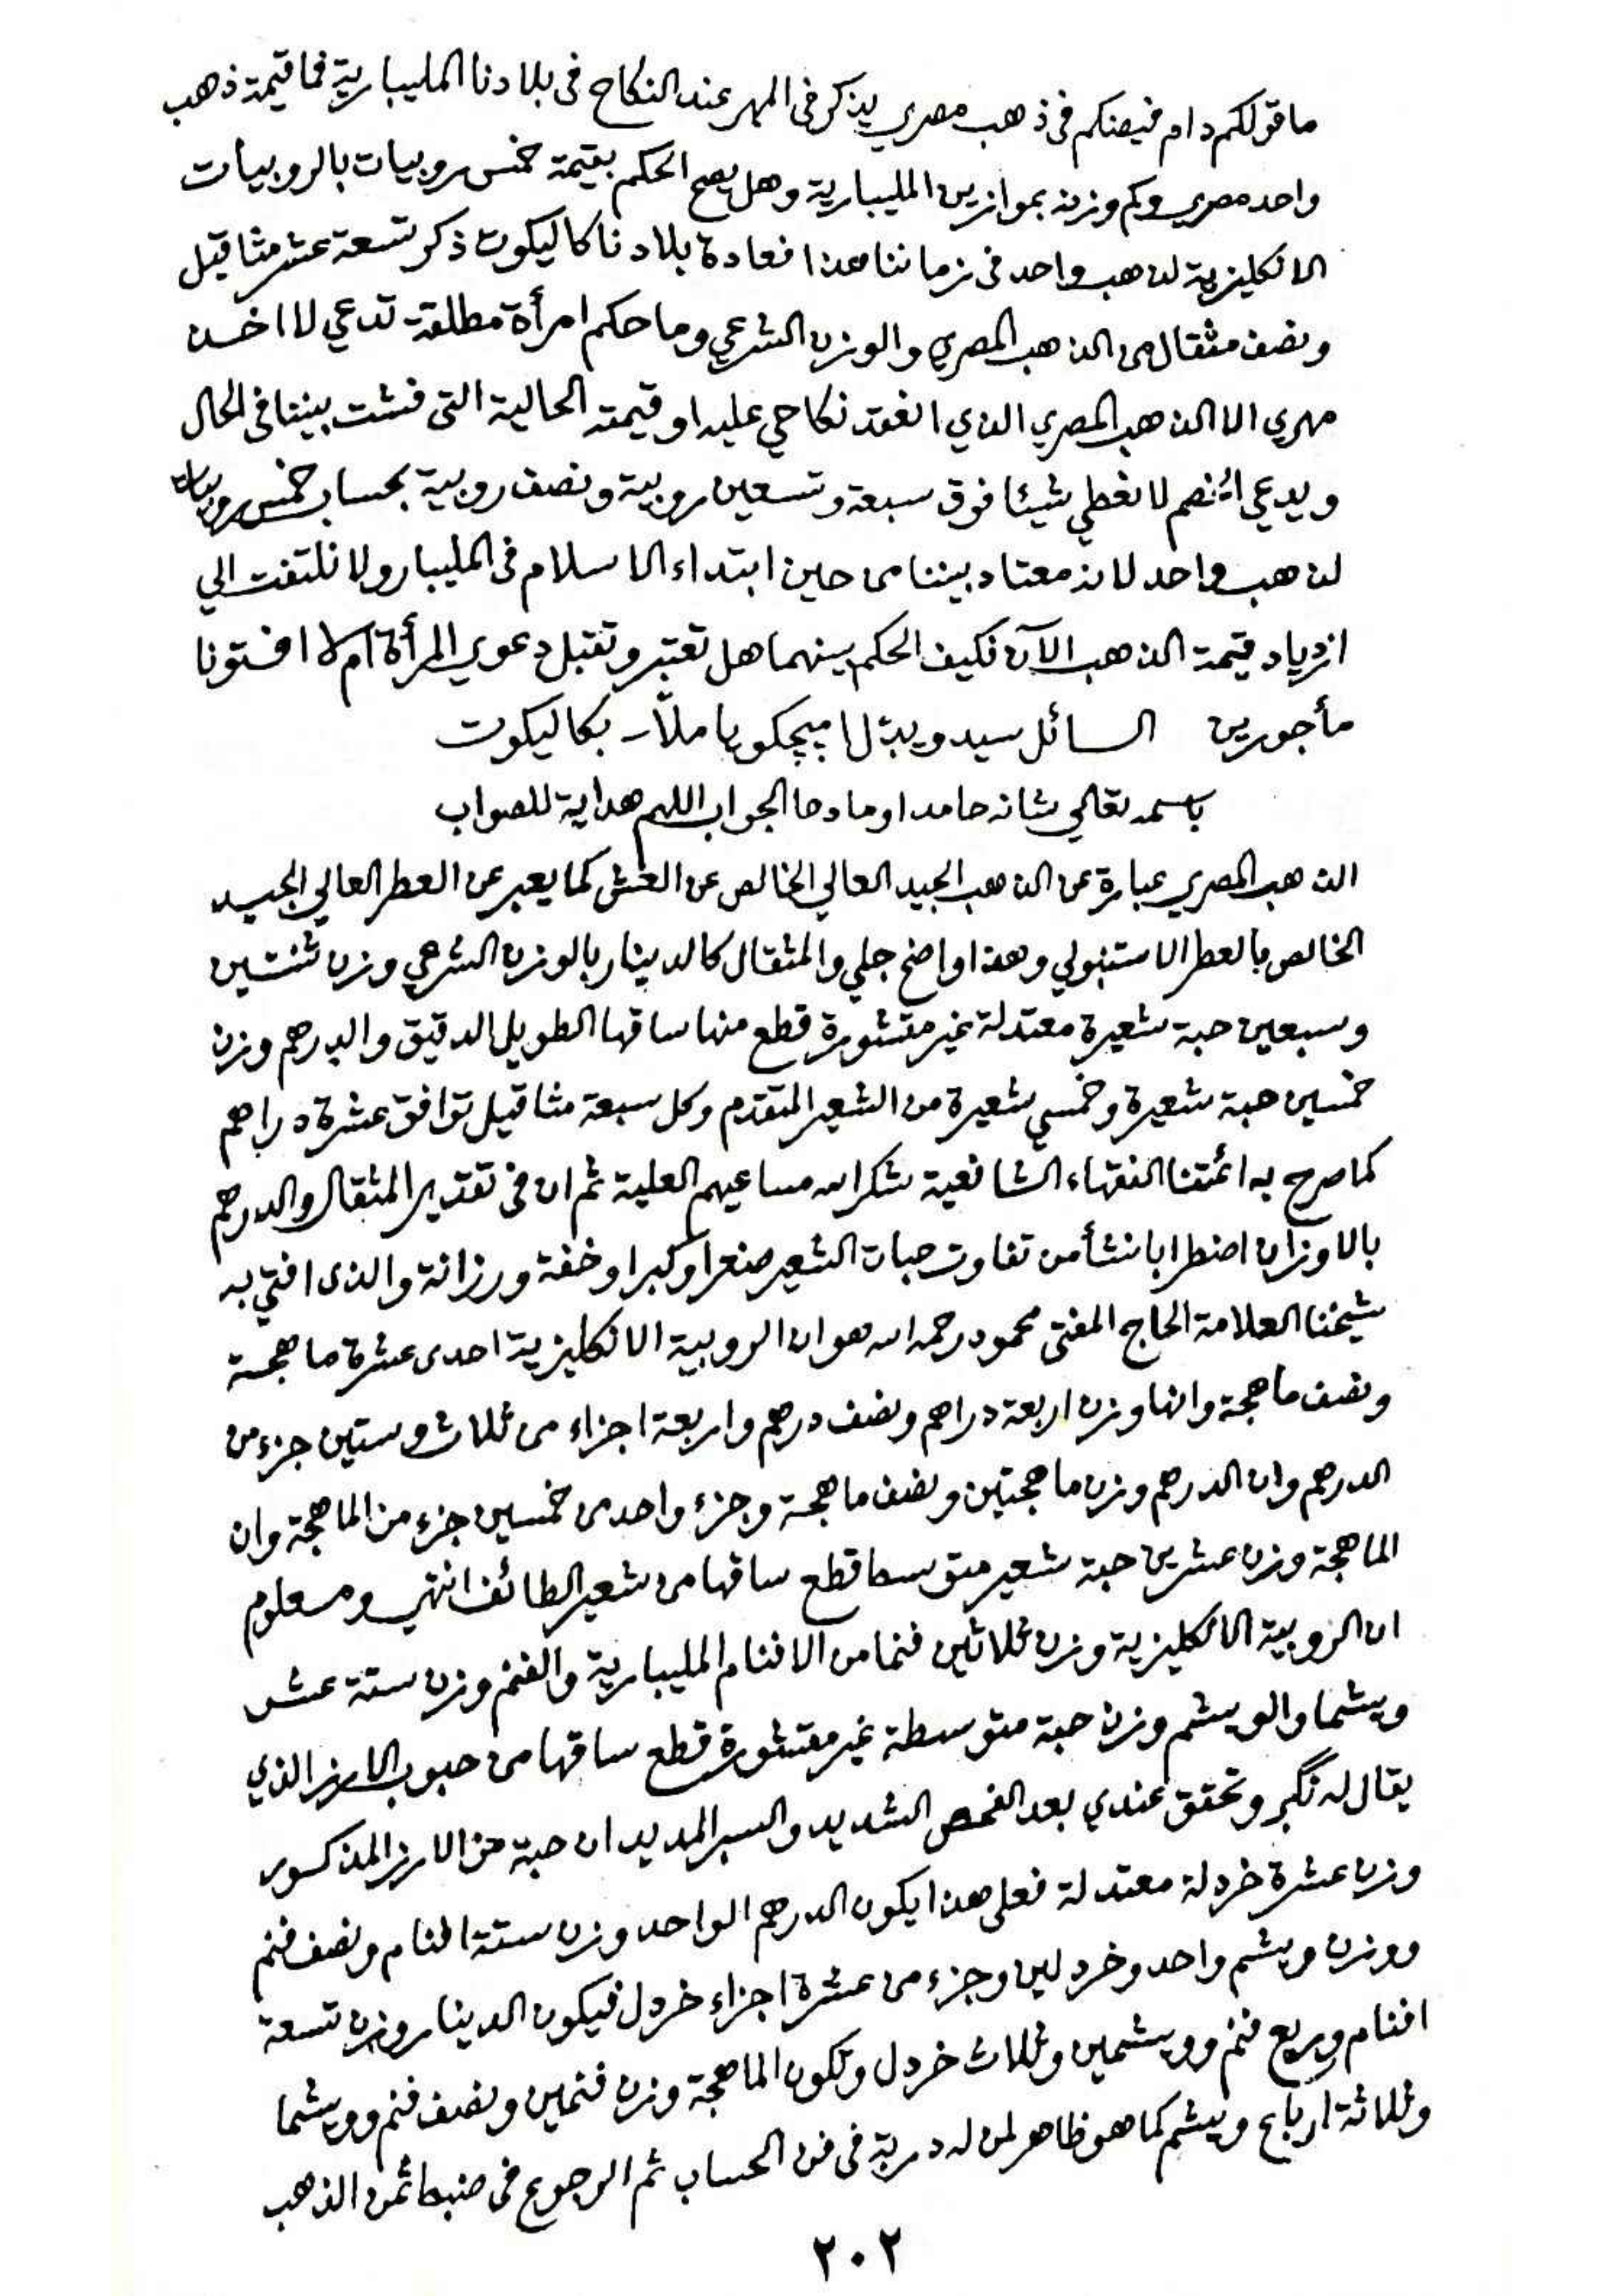 ما قولكم دام فيضكم في ذهب مصري يذكر في المهر عند النكاح في بلادنا المليبارية فما قيمة ذهب
واحد مصري وكم وزنه بموازين المليبارية وهل يصح الحكم بقيمة خمس روبيات بالروبيات
الانكليزية لذهب واحد في زماننا هذا فعادة بلادنا كاليكوت ذكر تسعة عشر مثاقيل
ونصف مثقال من الذهب المصري والوزن الشرعي وما حكم امرأة مطلقة تدعي لا اخذ
مهري الا الذهب المصري الذي انعقد نكاحي عليه او قيمته الحالية التي فشت بيننا في الحال
ويدعي الخصم لا نعطي شيئا فوق سبعة وتسعين روبية ونصف روبية بحساب خمس روبيات
لذهب واحد لانه معتاد بيننا من حين ابتداء الاسلام في المليبار ولا نلتفت الي
ازدياد قيمة الذهب الآن فكيف الحكم بينهما هل تعتبر وتقبل دعوي المرأة ام لا افتونا
مأجورين السائل سيدويبّل اميچكويا ملّا - بكاليكوت
باسمه تعالي شانه حامدا ومادحا الجواب اللهم هداية للصواب
الذهب المصري عبارة عن الذهب الجيد العالي الخالص عن الغش كما يعبر عن العطر العالي الجيد
الخالص بالعطر الاستنبولي وهذا واضح جلي والمثقال كالدينار بالوزن الشرعي وزن ثنتين
وسبعين حبة شعيرة معتدلة غير مقشورة قطع منها ساقها الطويل الدقيق والدرهم وزن
خمسين حبة شعيرة وخمسي شعيرة من الشعير المتقدم وكل سبعة مثاقيل توافق عشرة دراهم
كما صرح به ائمتنا الفقهاء الشافعية شكر الله مساعيهم العلية ثم ان في تقدير المثقال والدرهم
بالاوزان اضطرابا نشأ من تفاوت حبات الشعير صغرا وكبرا وخفة ورزانة والذى افتي به
شيخنا العلامة الحاج المفتى محمود رحمه الله هو ان الروبية الانكليزية احدى عشرة ماهجة
ونصف ماهجة وانها وزن اربعة دراهم ونصف درهم واربعة اجزاء من ثلاث وستين جزء من
الدرهم وان الدرهم وزن ماهجتين ونصف ماهجة وجزء واحد من خمسين جزء من الماهجة وان
الماهجة وزن عشرين حبة شعير متوسطا قطع ساقها من شعير الطائف انتهي ومعلوم
ان الروبية الانكليزية وزن ثلاثين فنما من الافنام المليبارية والفنم وزن ستة عشر
ويشما والويشم وزن حبة متوسطة غير مقشورة قطع ساقها من حبوب الارز الذي
يقال له نگبر وتحقق عندي بعد الفحص الشديد والسبر المديد ان حبة من الارز المذكور
وزن عشرة خردلة معتدلة فعلى هذا يكون الدرهم الواحد وزن ستة افنام ونصف فنم
ووزن ويشم واحد وخردلين وجزء من عشرة اجزاء خردل فيكون الدينار وزن تسعة
افنام وربع فنم وويشمين وثلاث خردل وتكون الماهجة وزن فنمين ونصف فنم وويشما
وثلاثة ارباع ويشم كما هو ظاهر لمن له دربة في فن الحساب ثم الرجوع في ضبط ثمن الذهب
٢٠٢